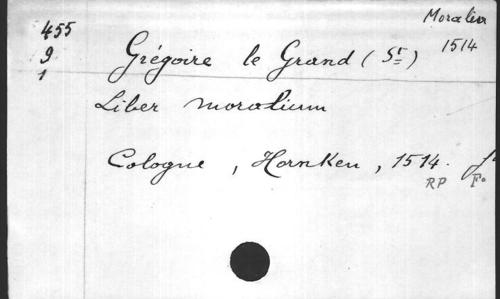 455
9
1
Moralia
1514
Grégoire le Grand (St)
Liber moralium
Cologne, Hornken, 1514. f
RP Fo